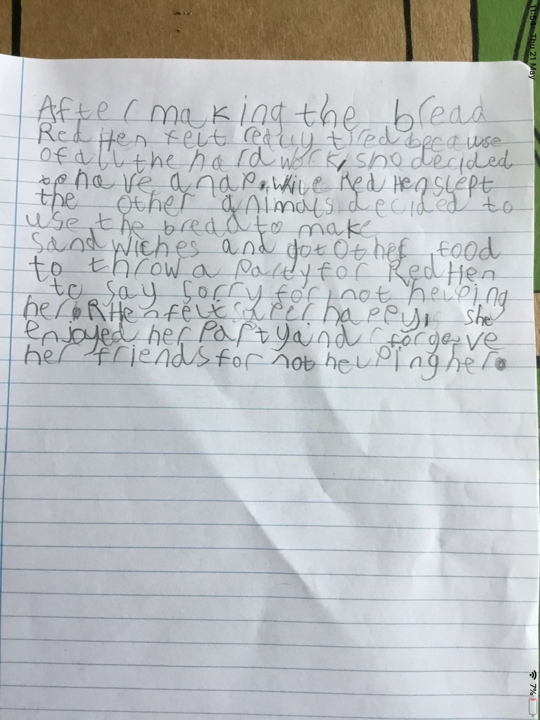 After making the bread
Red Hen felt really tired because
of all the hard work, sho decided
to have a nap. while Red Hen slept
the other animals decided to
use the bread to make
sandwiches and got other food
to throw a party for Red Hen
to say sorry for not helping
her. RHen felt super happy, she
enjoyed her party and forgave
her friends for not helping her.
11:54 Thu 21 May
7%